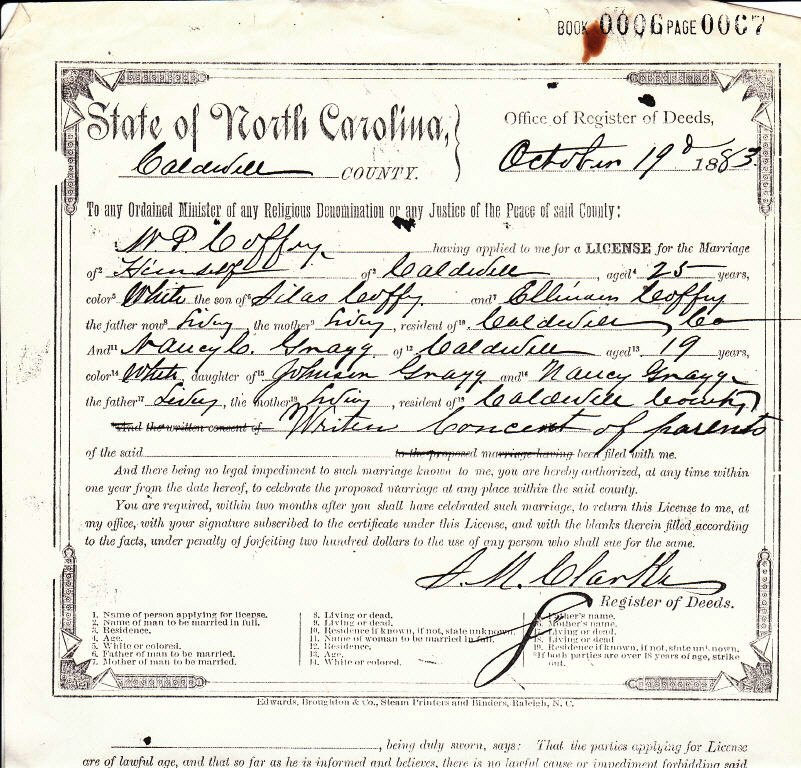 BOOK 0006 PAGE 0067
State of North Carolina,
Office of Register of Deeds,
Caldwell COUNTY.
October 19d 1883.
To any Ordained Minister of any Religious Denomination or any Justice of the Peace of said County:
W. P. Coffey having applied to me for a LICENSE for the Marriage
of2 Himself of3 Caldwell, aged4 25 years,
color5 White the son of6 Silas Coffey and7 Coffey
the father now8 Living, the mother9 Living, resident of10 Caldwell Co
And11 Nancy C. Gragg of12 Caldwell aged13 19 years,
color14 White daughter of15 Johnson Gragg and16 Nancy Gragg
the father17 Living, the mother18 Living, resident of19 Caldwell County
And the written consent of Writen Concent of parents
of the said to the proposed marriage having been filed with me.
And there being no legal impediment to such marriage known to me, you are hereby authorized, at any time within
one year from the date hereof, to celebrate the proposed marriage at any place within the said county.
You are required, within two months after you shall have celebrated such marriage, to return this License to me, at
my office, with your signature subscribed to the certificate under this License, and with the blanks therein filled according
to the facts, under penalty of forfeiting two hundred dollars to the use of any person who shall sue for the same.
M. Clarke
Register of Deeds.
1. Name of person applying for license.
2. Name of man to be married in full.
3. Residence.
4. Age.
5. White or colored.
6. Father of man to be married.
7. Mother of man to be married.
8. Living or dead.
9. Living or dead.
10. Residence if known, if not, state unknown.
11. Name of woman to be married in full.
12. Residence.
13. Age.
14. White or colored.
15. Father's name.
16. Mother's name.
17. Living or dead
18. Living or dead
19. Residence if known, if not, state unknown.
*If both parties are over 18 years of age, strike
out.
Edwards, Broughton & Co., Steam Printers and Binders, Raleigh, N. C.
, being duly sworn, says: That the parties applying for License
are of lawful age, and that so far as he is informed and believes, there is no lawful cause or impediment forbidding said